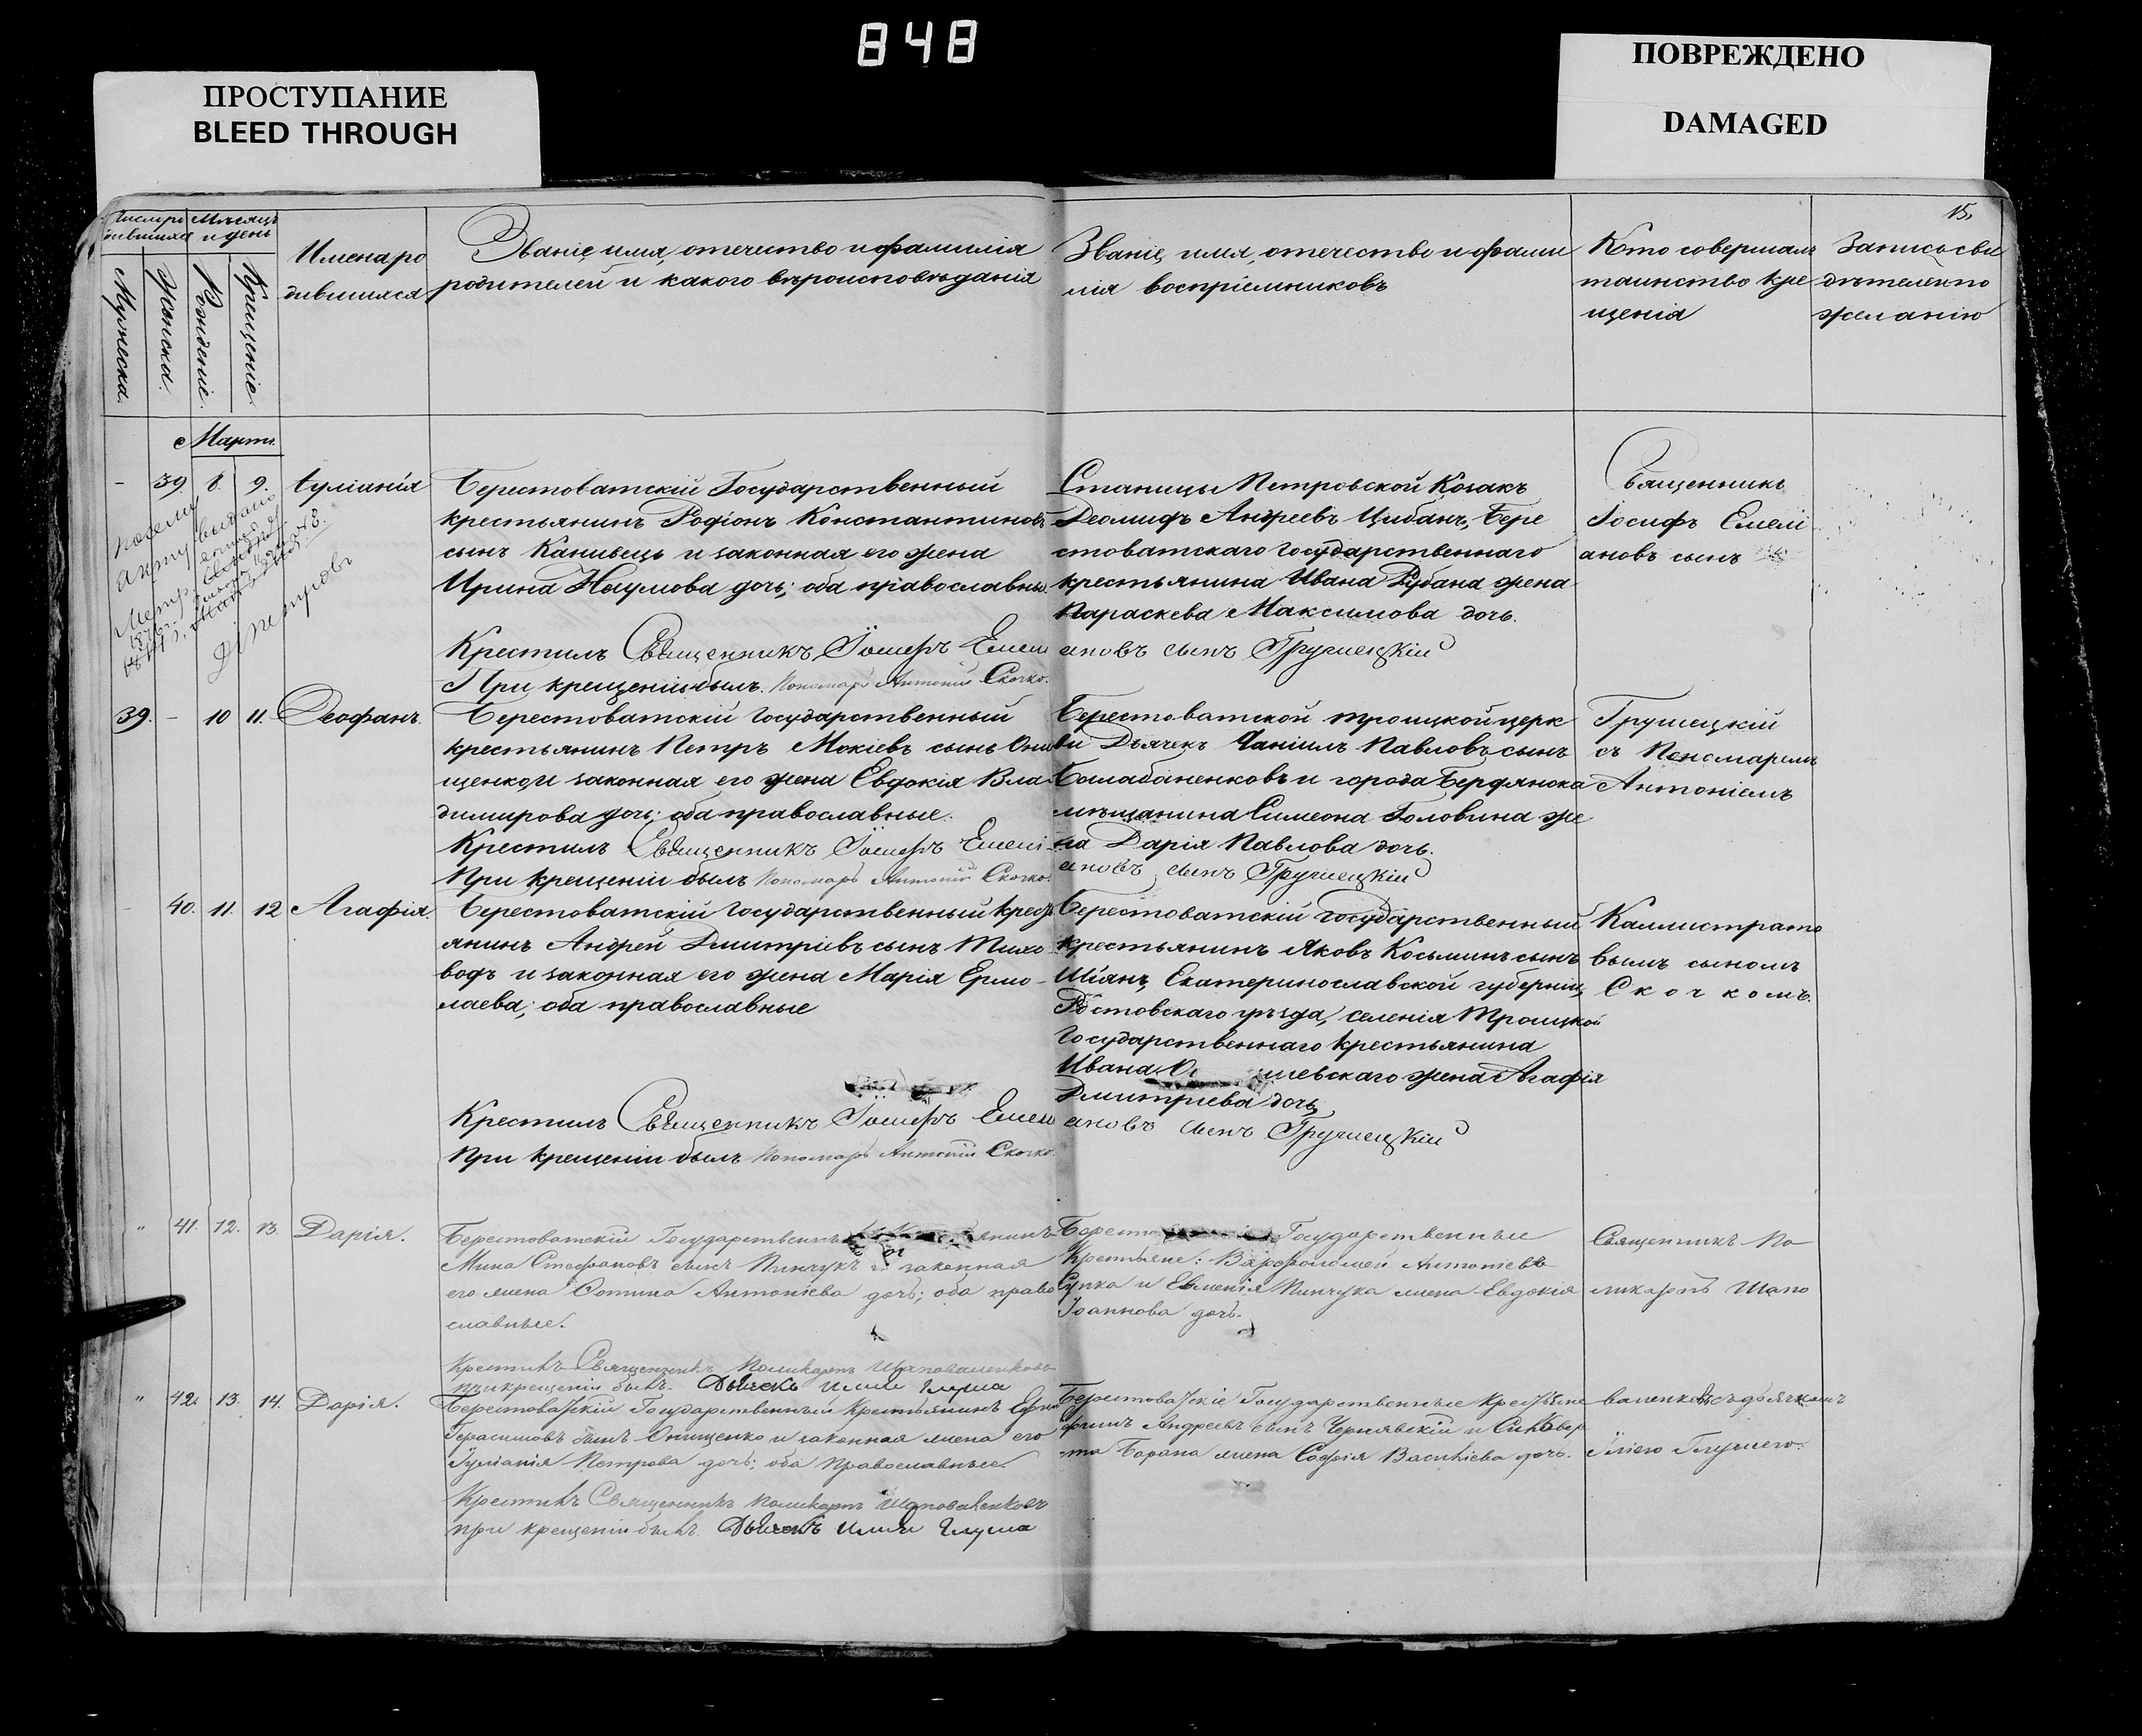 848
ПРОСТУПАНИЕ
BLEED THROUGH
ПОВРЕЖДЕНО
DAMAGED
15.
Мѣсяцъ
и день
Мужеска.
Женска.
Рожденіе.
Крещеніе.
Имена ро
дившихся
Званіе, имя, отечество и фамилія
родителей и какого вѣроисповѣданія
Званіе, имя, отечество и фами
лія воспріемниковъ
Кто совершалъ
таинство кре
щенія
Запись сви
дѣтелей по
желанію
Мартъ.
- 39. 8. 9. Іуліанія
Берестоватскій Государственный
крестьянинъ Родіонъ Константиновъ
сынъ Канивецъ и законная его жена
Ирина Наумова дочь; оба православные
Крестилъ Священникъ Іосифъ Емели
При крещеніи былъ Пономарь Антоній Скочко.
Станицы Петровской Козакъ
Діомидъ Андреевъ Цибань, Бере
стоватскаго Государственнаго
крестьянина Ивана Рубана жена
Параскева Максимова дочь.
ановъ сынъ Грушецкій
Священникъ
Іосифъ Емелі
ановъ сынъ
39. - 10 11. Феофанъ.
Берестоватскій Государственный
крестьянинъ Петръ Мокіевъ сынъ Они
щенко и законная его жена Евдокія Вла-
димирова дочь; оба православные.
Крестилъ Священникъ Іосифъ Емелі
При крещеніи былъ Пономарь Антоній Скочко.
Берестоватской троицкой церк
ви Дьячекъ Даніилъ Павловъ сынъ
Балабаненковъ и города Бердянска
мѣщанина Симеона Головина же
на Дарія Павлова дочь.
ановъ сынъ Грушецкій
Грушецкій
съ Пономаремъ
Антоніемъ
40. 11. 12 Агафія.
Берестоватскій Государственный крестъ
янинъ Андрей Дмитріевъ сынъ Тихо
водъ и законная его жена Марія Ермо-
лаева; оба православные
Крестилъ Священникъ Іосифъ Емели
При крещеніи былъ Пономарь Антоній Скочко.
Берестоватскій государственный
крестьянинъ Яковъ Косьминъ сынъ
Шіянъ, Екатеринославской губерніи,
Ростовскаго уѣзда, селенія Троицкой
Государственнаго крестьянина
Ивана жена Агафія
Дмитріева дочь
ановъ сынъ Грушецкій
Каллистрато
вымъ сыномъ
Скочкомъ.
" 41. 12. 13. Дарія.
Берестоватскій Государственный
Мина Стефановъ сынъ Пинчукъ и законная
его жена Антоніева дочь; оба право
славные.
Крестилъ Священникъ Поликарпъ Шаповаленковъ
при крещеніи былъ. Дьячекъ Илія Глуша
Государственные
Крестьяне: Варфоломей Антоніевъ
Супка и Евменія Пинчука жена Евдокія
Іоаннова дочь.
Священникъ По
ликарпъ Шапо
" 42. 13. 14. Дарія.
Берестоватскій Государственный Крестьянинъ
Герасимовъ сынъ Онищенко и законная жена его
Іуліанія Петрова дочь; оба Православные.
Крестилъ Священникъ Поликарпъ Шаповаленковъ
при крещеніи былъ. Дьячекъ Илія Глуша
Берестоватскіе Государственные Крестьяне
Андреевъ сынъ Чернявскій и Сильвер
ста Барана жена Софія Василіева дочь.
валенковъ съ дьячкомъ
Іліею Глушею.